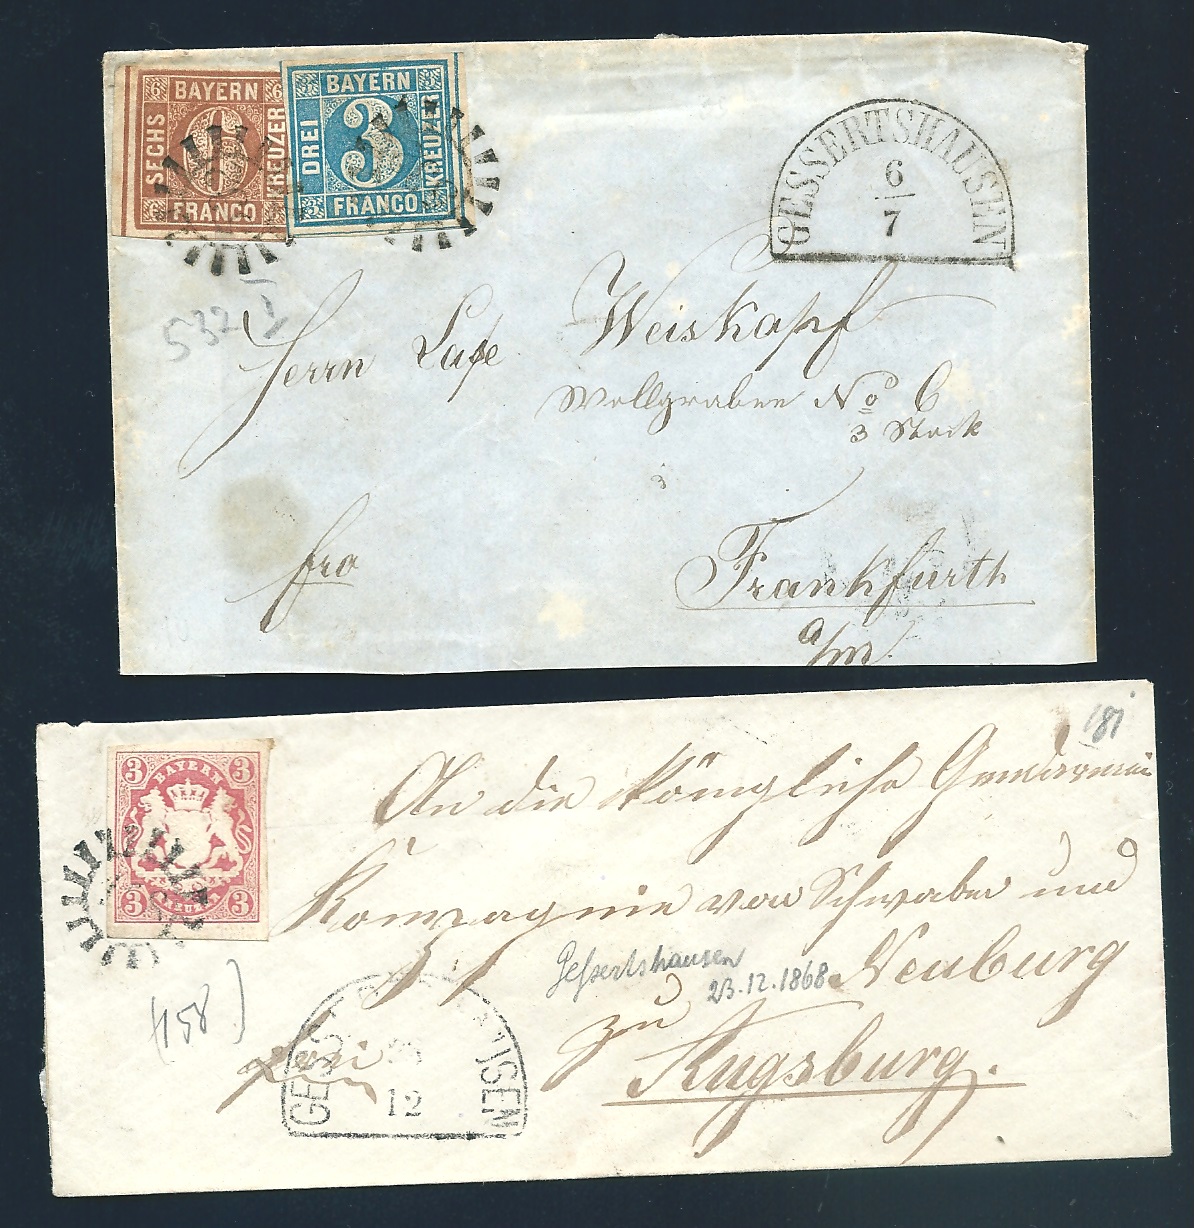 6 BAYERN 6
SECHS 6 KREUZER
6 FRANCO
BAYERN
DREI 3 KREUZER
FRANCO
GESSERTSHAUSEN
6
7
532
Herrn Weiskapf
Wollgraben No 6
3 Stock
fro
Frankfurth
a/m.
3 BAYERN 3
3 KREUZER 3
181
An die Königliche
Kompagnie von Schwaben und
Neuburg
Gessertshausen
23.12.1868
zu
Augsburg.
(158)
GESS AUSEN
12